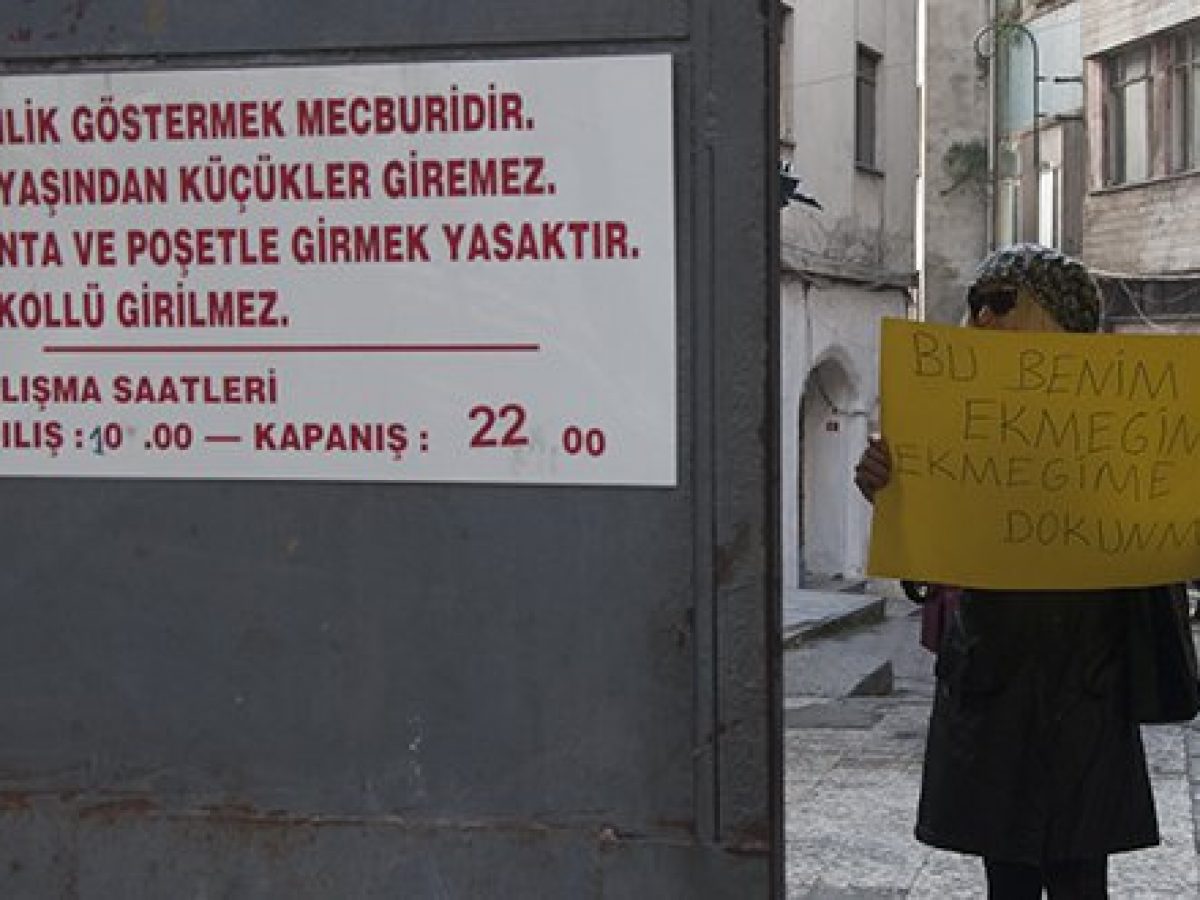 İLİK GÖSTERMEK MECBURİDİR.
YAŞINDAN KÜÇÜKLER GİREMEZ.
NTA VE POŞETLE GİRMEK YASAKTIR.
KOLLÜ GİRİLMEZ.
LIŞMA SAATLERİ
ILIŞ : 10 .00 — KAPANIŞ : 22 00
BU BENİM
EKMEGİM
EKMEGİME
DOKUNM